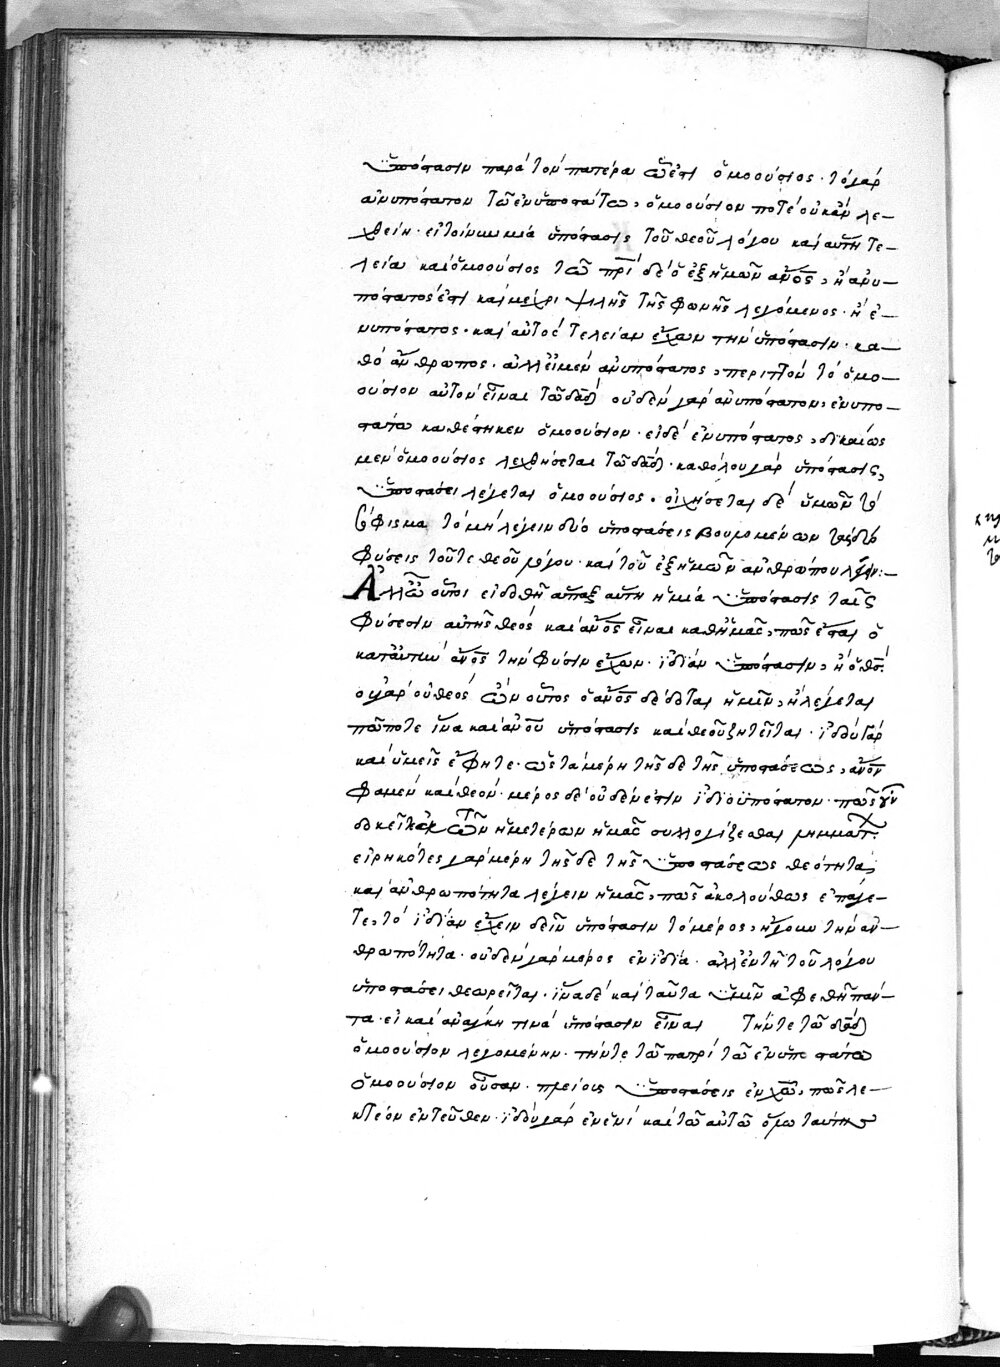 ὑπόστασιν παρὰ τὸν πατέρα ὥς ἐστι ὁμοούσιος· τὸ γὰρ
ἀνυπόστατον τῶ ἐνυποστάτω, ὁμοούσιον ποτὲ οὐκ ἂν λε-
χθείη· εἰ τοίνυν μία ὑπόστασις τοῦ θεοῦ λόγου καὶ αὕτη τε-
λεία καὶ ὁμοούσιος τῶ πρὶ· ὁ δὲ ἐξ ἡμῶν ἄνος, ἢ ἀνυ-
πόστατος ἐστὶ καὶ μέχρι ψιλῆς τῆς φωνῆς λεγόμενος· ἢ ἐ-
νυπόστατος· καὶ αὐτὸς τελείαν ἔχων τὴν ὑπόστασιν· κα-
θὸ ἄνθρωπος· ἀλλ' εἰ μὲν ἀνυπόστατος, περιττὸν τὸ ὁμο-
ούσιον αὐτὸν εἶναι τῶ δαδ οὐδὲν γὰρ ἀνυπόστατον, ἐνυπο-
στάτω καθέστηκεν ὁμοούσιον· εἰ δὲ ἐνυπόστατος, δικαίως
μὲν ὁμοούσιος λεχθήσεται τῶ δαδ· καθόλου γὰρ ὑπόστασις,
ὑποστάσει λέγεται ὁμοούσιος· οἰχήσεται δὲ ὑμῶν τὸ
σόφισμα τὸ μὴ λέγειν δύο ὑποστάσεις βουλομένων τὰς δύο
φύσεις τοῦ τε θεοῦ λόγου· καὶ τοῦ ἐξ ἡμῶν ἀνθρώπου λέγειν:-
Ἀλλ' ὦ οὗτοι εἰ δοθῆ ἅπαξ αὕτη ἡ μία ὑπόστασις ταῖς
φύσεσιν αὐτῆς θεὸς καὶ ἄνος εἶναι καθ' ἡμᾶς, πῶς ἔσται ὁ
κατ' αὐτὴν ἄνος τὴν φύσιν ἔχων· ἰδίαν ὑπόστασιν, ἢ ὁ θσ·
οὐ γὰρ οὐ θεὸς ὢν οὗτος ὁ ἄνος δέδοται ἡμῖν, ἢ λέγεται
πώποτε ἵνα καὶ ἀνου ὑπόστασις καὶ θεοῦ ζητεῖται· ἰδοὺ γὰρ
καὶ ὑμεῖς ἔφητε· ὡς τὰ μέρη τῆσδε τῆς ὑποστάσεως, ἄνον
φαμὲν καὶ θεόν· μέρος δὲ οὐδέν ἐστιν ἰδιοϋπόστατον· πῶς γοῦν
δοκεῖ κἀκ τῶν ἡμετέρων ἡμᾶς συλλογίζεσθαι
εἰρηκότες γὰρ μέρη τῆσδε τῆς ὑποστάσεως θεότητα,
καὶ ἀνθρωπότητα λέγειν ἡμᾶς, πῶς ἀκολούθως ἐπάγε-
τε, τὸ ἰδίαν ἔχειν δεῖν ὑπόστασιν τὸ μέρος, ἤγουν τὴν ἀν-
θρωπότητα· οὐδὲν γὰρ μέρος ἐν ἰδία· ἀλλ' ἐν τῆ τοῦ λόγου
ὑποστάσει θεωρεῖται· ἵνα δὲ καὶ ταῦτα ὑμῖν ἀφεθῆ πάν-
τα· εἰ καὶ ἀνάγκη τινὰ ὑπόστασιν εἶναι τήν τε τῶ δαδ
ὁμοούσιον λεγομένην· τήν τε τῶ πατρὶ τῶ ἐνυποστάτω
ὁμοούσιον οὖσαν· πλείους ὑποστάσεις ἐν χῶ, πῶς λε-
κτέον ἐντεῦθεν· ἰδοὺ γὰρ ἐν ἑνὶ καὶ τῶ αὐτῶ ὅλω ταύτης